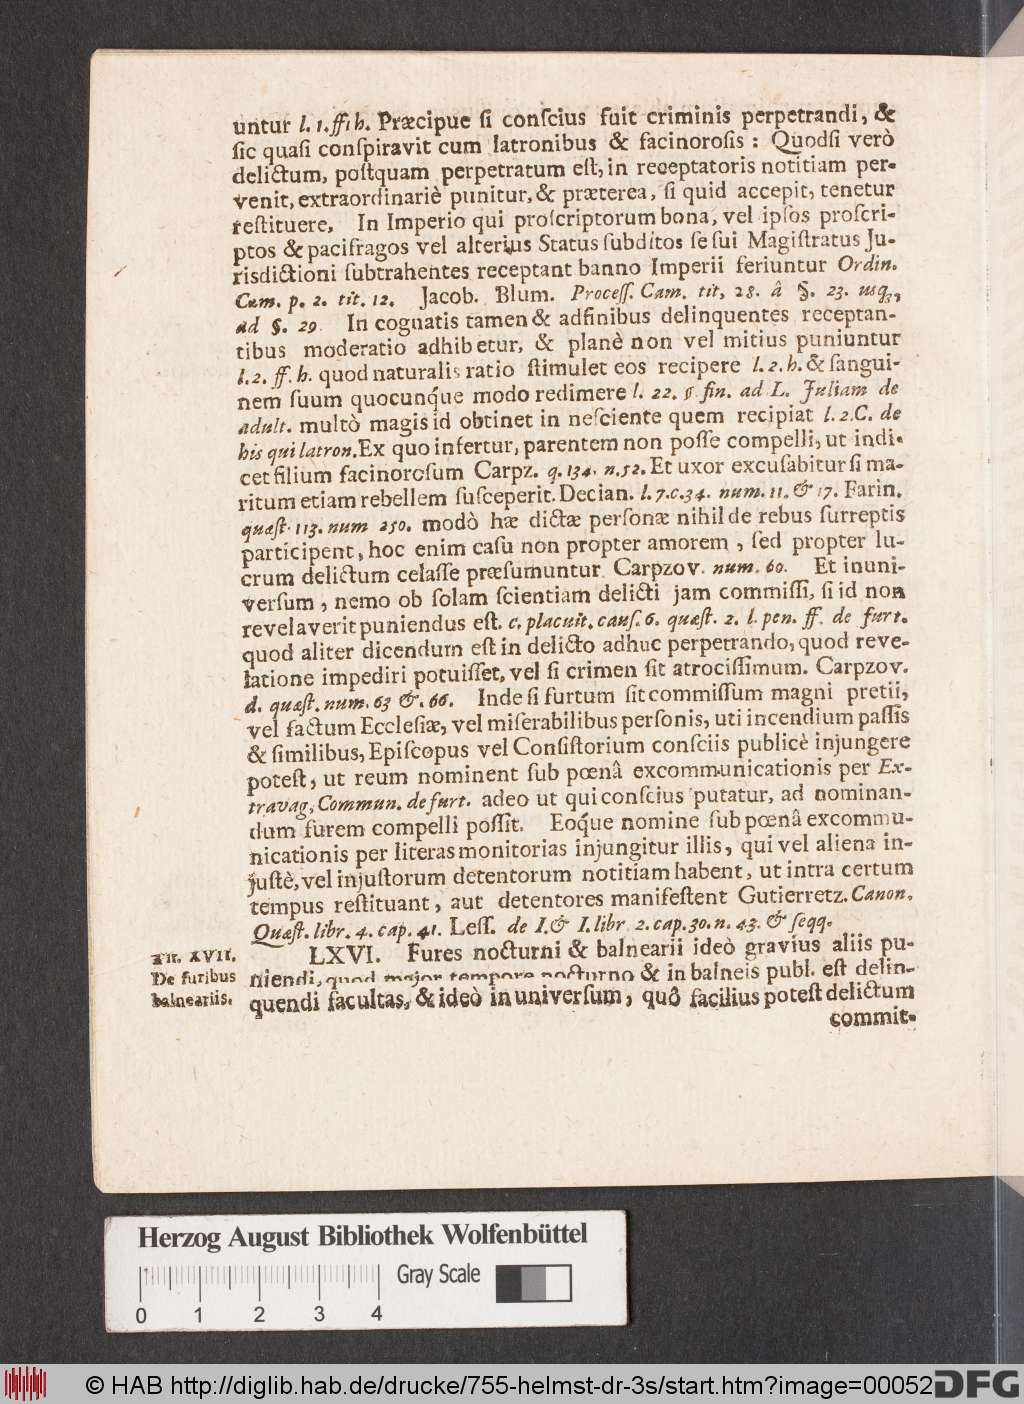 untur l. 1. ff. h. Præcipue ſi conſcius fuit criminis perpetrandi, &
ſic quaſi conſpiravit cum latronibus & facinoroſis : Quodſi verò
delictum, poſtquam perpetratum eſt, in receptatoris notitiam per-
venit, extraordinariè punitur, & præterea, ſi quid accepit, tenetur
reſtituere. In Imperio qui proſcriptorum bona, vel ipſos proſcri-
ptos & pacifragos vel alterius Status ſubditos ſe ſui Magiſtratus Ju-
risdictioni ſubtrahentes receptant banno Imperii feriuntur Ordin.
Cam. p. 2. tit. 12. Jacob. Blum. Proceſſ. Cam. tit, 28. â §. 23. usq;
ad §. 29. In cognatis tamen & adfinibus delinquentes receptan-
tibus moderatio adhibetur, & planè non vel mitius puniuntur
l. 2. ff. h. quod naturalis ratio ſtimulet eos recipere l. 2. h. & ſangui-
nem ſuum quocunq́ue modo redimere l. 22. § fin. ad L. Juliam de
adult. multò magis id obtinet in neſciente quem recipiat l. 2. C. de
his qui latron. Ex quo infertur, parentem non poſſe compelli, ut indi-
cet filium facinoroſum Carpz. q. 134. n. 52. Et uxor excuſabitur ſi ma-
ritum etiam rebellem ſuſceperit. Decian. l. 7. c. 34. num. 11. & 17. Farin.
quæſt. 113. num 250. modò hæ dictæ perſonæ nihil de rebus ſurreptis
participent, hoc enim caſu non propter amorem , ſed propter lu-
crum delictum celaſſe præſumuntur. Carpzov. num. 60. Et in uni-
verſum , nemo ob ſolam ſcientiam delicti jam commiſſi, ſi id non
revelaverit puniendus eſt. c. placuit. cauſ. 6. quæſt. 2. l. pen. ff. de furt.
quod aliter dicendum eſt in delicto adhuc perpetrando, quod reve-
latione impediri potuiſſet, vel ſi crimen ſit atrociſſimum. Carpzov.
d. quæſt. num. 63 &. 66. Inde ſi furtum ſit commiſſum magni pretii,
vel factum Eccleſiæ, vel miſerabilibus perſonis, uti incendium paſſis
& ſimilibus, Epiſcopus vel Conſiſtorium conſciis publicè injungere
poteſt, ut reum nominent ſub pœnâ excommunicationis per Ex-
travag, Commun. de furt. adeo ut qui conſcius putatur, ad nominan-
dum furem compelli poſſit. Eoq́ue nomine ſub pœnâ excommu-
nicationis per literas monitorias injungitur illis, qui vel aliena in-
juſtè, vel injuſtorum detentorum notitiam habent, ut intra certum
tempus reſtituant, aut detentores manifeſtent Gutierretz. Canon.
Quæſt. libr. 4. cap. 41. Leſſ. de I. & I. libr 2. cap. 30. n. 43. & ſeqq.
Tit. XVII.
De furibus
balneariis.
LXVI. Fures nocturni & balnearii ideò gravius aliis pu-
niendi, quod major tempore nocturno & in balneis publ. eſt delin-
quendi facultas, & ideò in univerſum, quô facilius poteſt delictum
commit-
Herzog August Bibliothek Wolfenbüttel
Gray Scale
0 1 2 3 4
© HAB http://diglib.hab.de/drucke/755-helmst-dr-3s/start.htm?image=00052
DFG